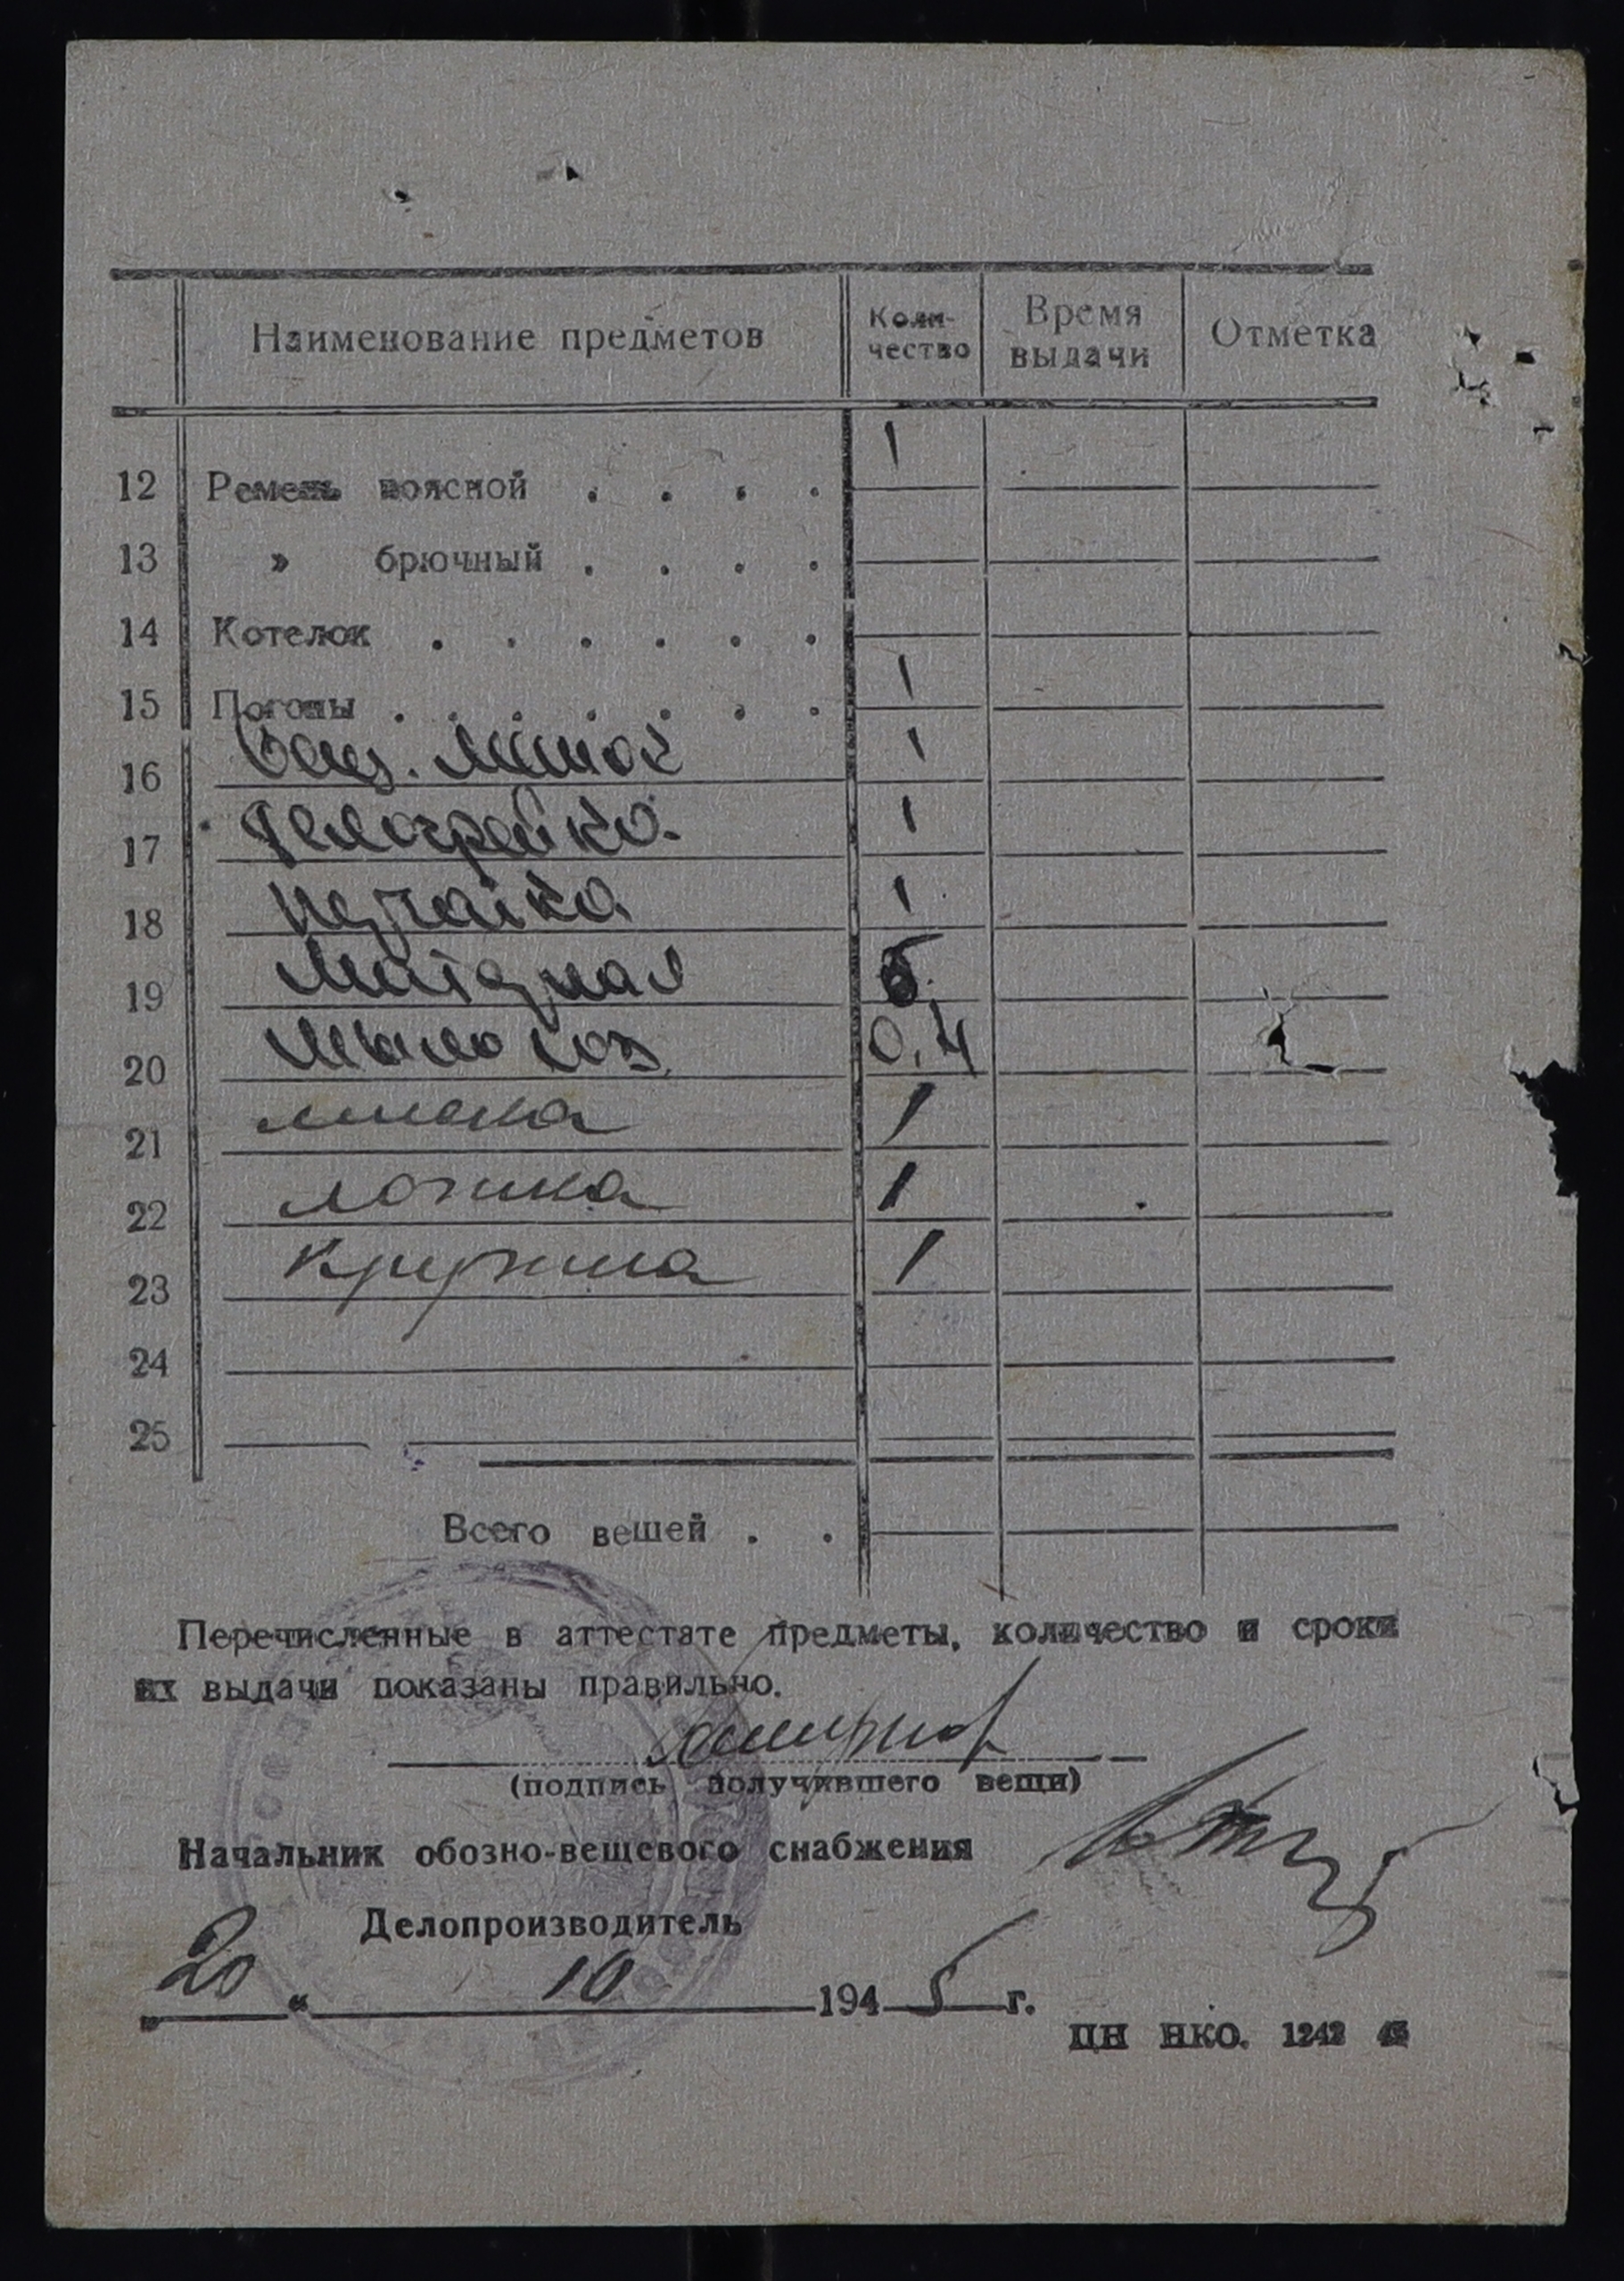 Наименование предметов Коли-чество Время выдачи Отметка
12 Ремень поясной . . . . 1
13 » брючный . . . .
14 Котелок . . . . . .
15 Погоны . . . . . . . 1
16 Вещ. мешок 1
17 Телогрейка 1
18 1
19 5
20 Мыло хоз 0,4
21 миска 1
22 ложка 1
23 кружка 1
24
25
Всего вещей . .
Перечисленные в аттестате предметы, количество и сроки
их выдачи показаны правильно.
(подпись получившего вещи)
Начальник обозно-вещевого снабжения
Делопроизводитель
20 " 10 1945 г.
ЦН НКО. 1242